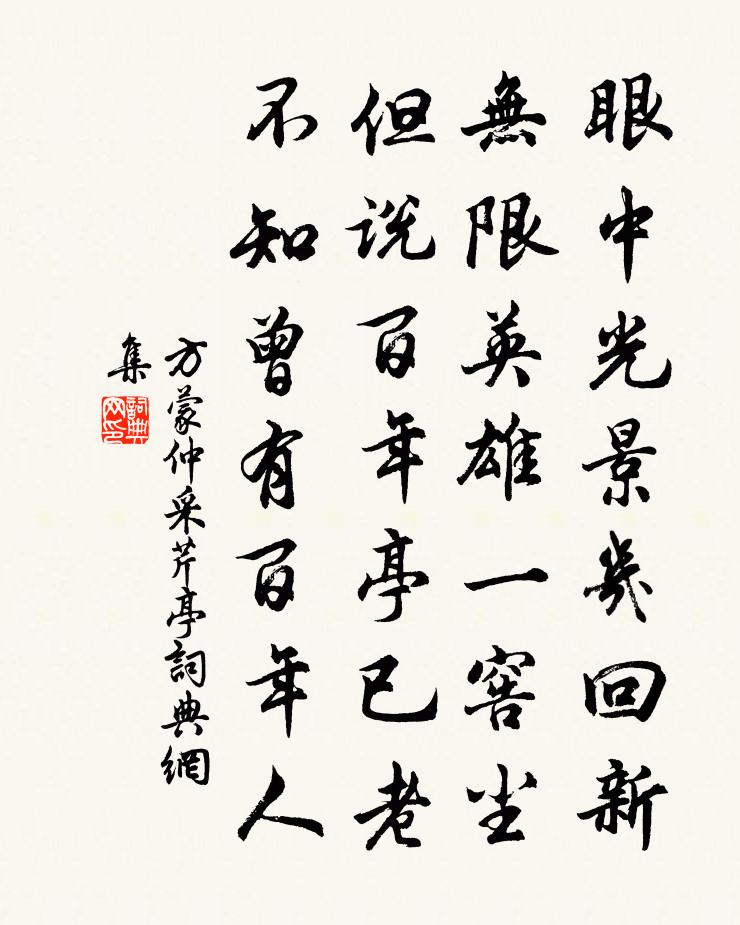 眼中光景幾回新
無限英雄一窖尘
但説百年亭已老
不知曾有百年人
方蒙仲采芹亭詞典網
集
詞典
网印